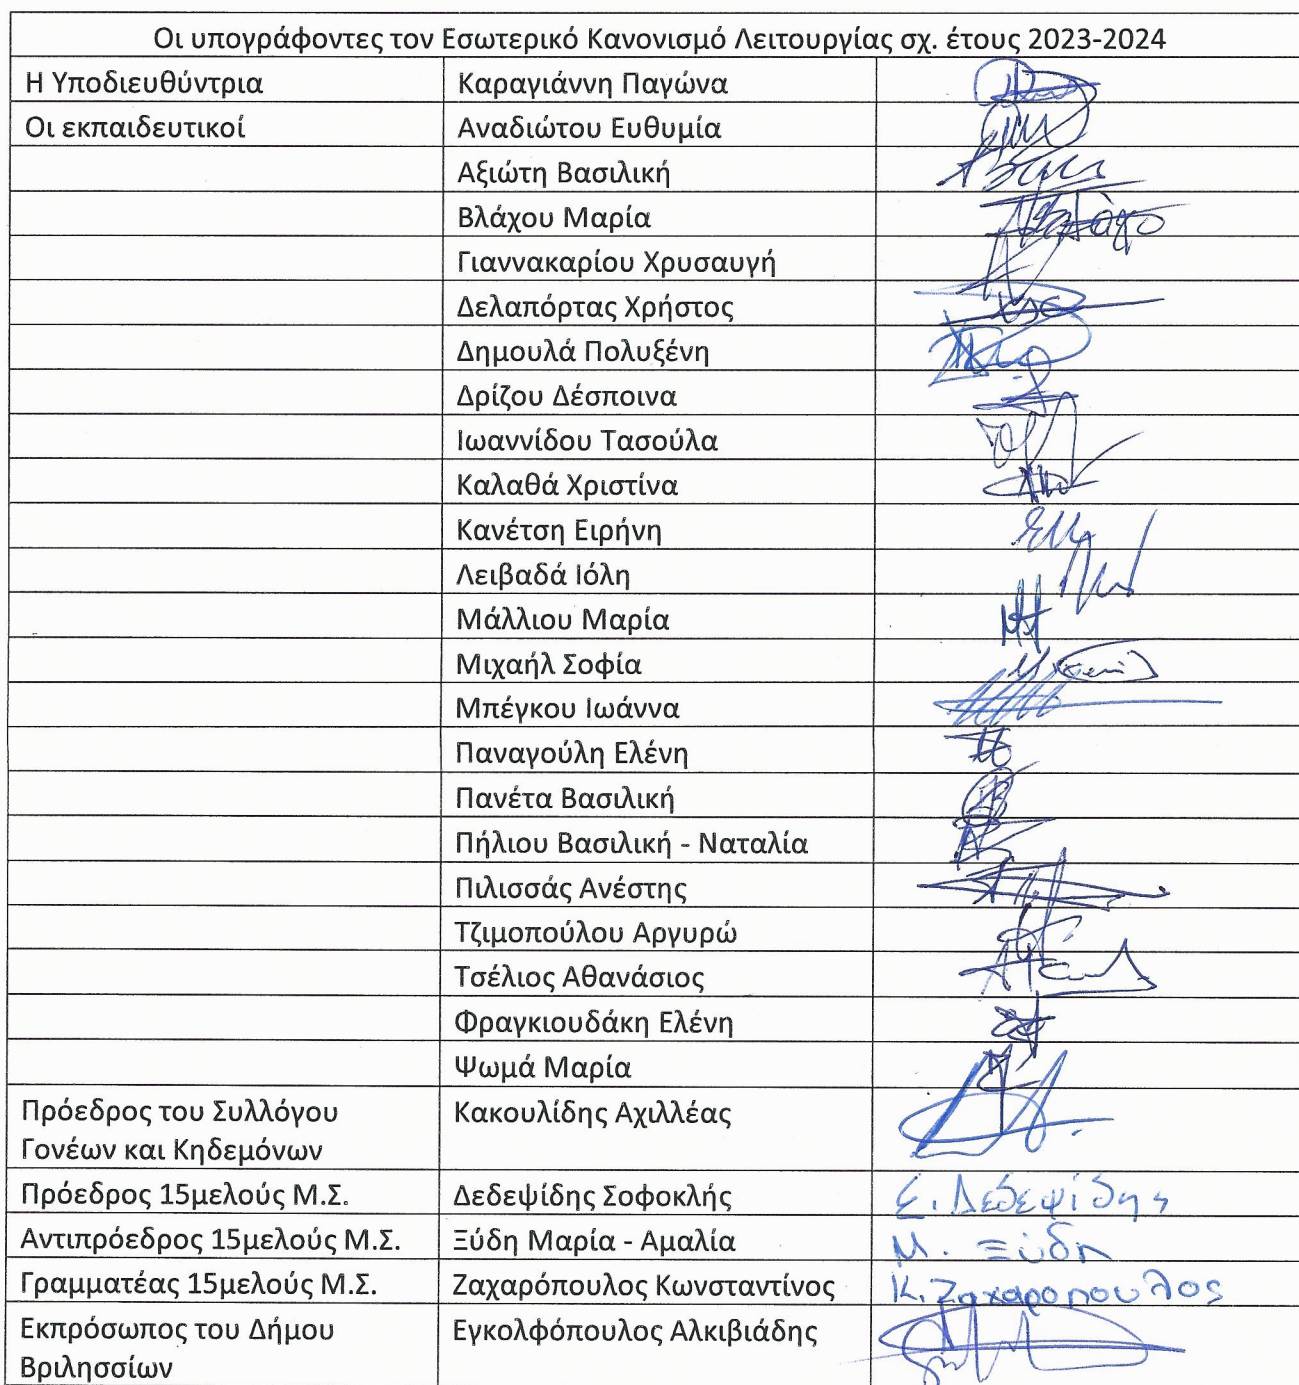 Οι υπογράφοντες τον Εσωτερικό Κανονισμό Λειτουργίας σχ. έτους 2023-2024
Η Υποδιευθύντρια Καραγιάννη Παγώνα
Οι εκπαιδευτικοί Αναδιώτου Ευθυμία
Αξιώτη Βασιλική
Βλάχου Μαρία
Γιαννακαρίου Χρυσαυγή
Δελαπόρτας Χρήστος
Δημουλά Πολυξένη
Δρίζου Δέσποινα
Ιωαννίδου Τασούλα
Καλαθά Χριστίνα
Κανέτση Ειρήνη
Λειβαδά Ιόλη
Μάλλιου Μαρία
Μιχαήλ Σοφία
Μπέγκου Ιωάννα
Παναγούλη Ελένη
Πανέτα Βασιλική
Πήλιου Βασιλική - Ναταλία
Πιλισσάς Ανέστης
Τζιμοπούλου Αργυρώ
Τσέλιος Αθανάσιος
Φραγκιουδάκη Ελένη
Ψωμά Μαρία
Πρόεδρος του Συλλόγου Κακουλίδης Αχιλλέας
Γονέων και Κηδεμόνων
Πρόεδρος 15μελούς Μ.Σ. Δεδεψίδης Σοφοκλής Σ. Δεδεψίδης
Αντιπρόεδρος 15μελούς Μ.Σ. Ξύδη Μαρία - Αμαλία Μ. Ξύδη
Γραμματέας 15μελούς Μ.Σ. Ζαχαρόπουλος Κωνσταντίνος Κ. Ζαχαροπουλος
Εκπρόσωπος του Δήμου Εγκολφόπουλος Αλκιβιάδης
Βριλησσίων